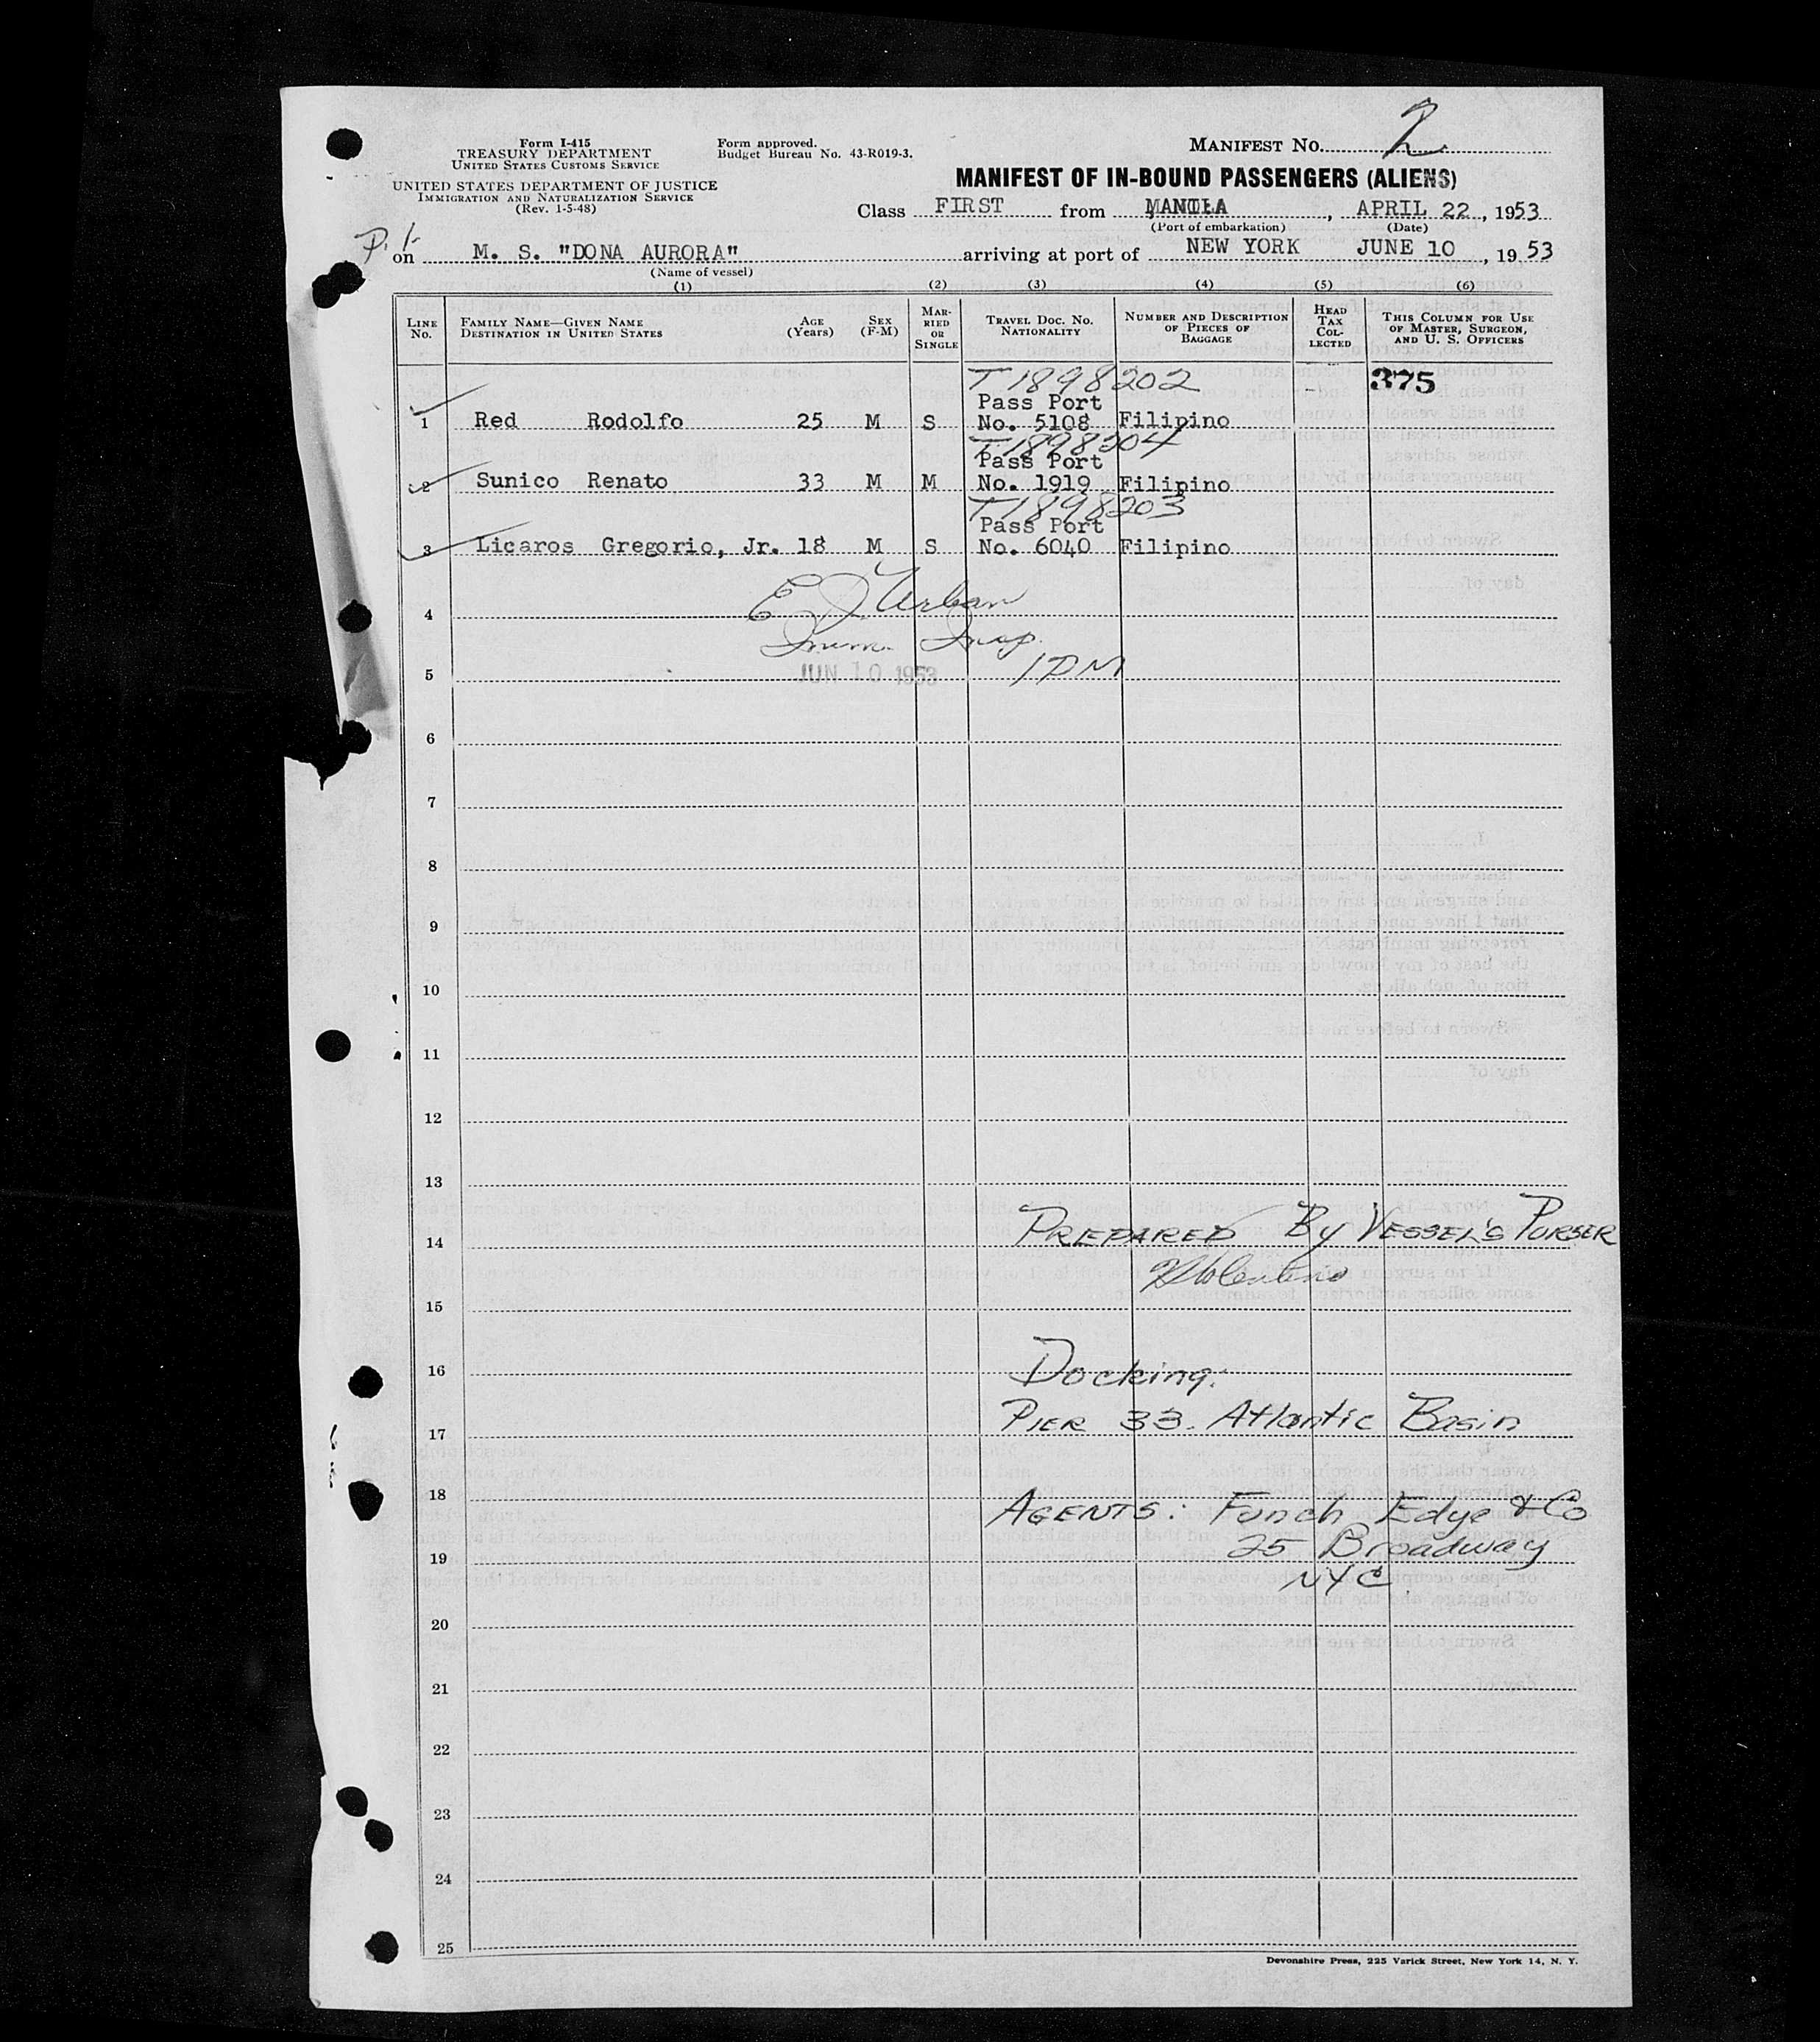 Form I-415
TREASURY DEPARTMENT
UNITED STATES CUSTOMS SERVICE
UNITED STATES DEPARTMENT OF JUSTICE
IMMIGRATION AND NATURALIZATION SERVICE
(Rev. 1-5-48)
Form approved.
Budget Bureau No. 43-R019-3.
MANIFEST No. 2
MANIFEST OF IN-BOUND PASSENGERS (ALIENS)
Class FIRST from MANILA, APRIL 22, 1953
(Port of embarkation) (Date)
P. 1
on M. S. "DONA AURORA" arriving at port of NEW YORK JUNE 10, 1953
(Name of vessel)
(1) (2) (3) (4) (5) (6)
LINE No.
FAMILY NAME—GIVEN NAME
DESTINATION IN UNITED STATES
AGE (Years)
SEX (F-M)
MARRIED OR SINGLE
TRAVEL DOC. No. NATIONALITY
NUMBER AND DESCRIPTION OF PIECES OF BAGGAGE
HEAD TAX COLLECTED
THIS COLUMN FOR USE OF MASTER, SURGEON, AND U. S. OFFICERS
T1898202 375
Pass Port
1 Red Rodolfo 25 M S No. 5108 Filipino
T1898204
Pass Port
2 Sunico Renato 33 M M No. 1919 Filipino
T1898203
Pass Port
3 Licaros Gregorio, Jr. 18 M S No. 6040 Filipino
E J Urban
4
Imm. Insp.
5 JUN 10 1953 1PM
6
7
8
9
10
11
12
13
14 PREPARED By VESSEL'S PURSER
15
16 Docking:
17 PIER 33. Atlantic Basin
18 AGENTS: Funch Edye & Co
19 25 Broadway
NYC.
20
21
22
23
24
25
Devonshire Press, 225 Varick Street, New York 14, N. Y.